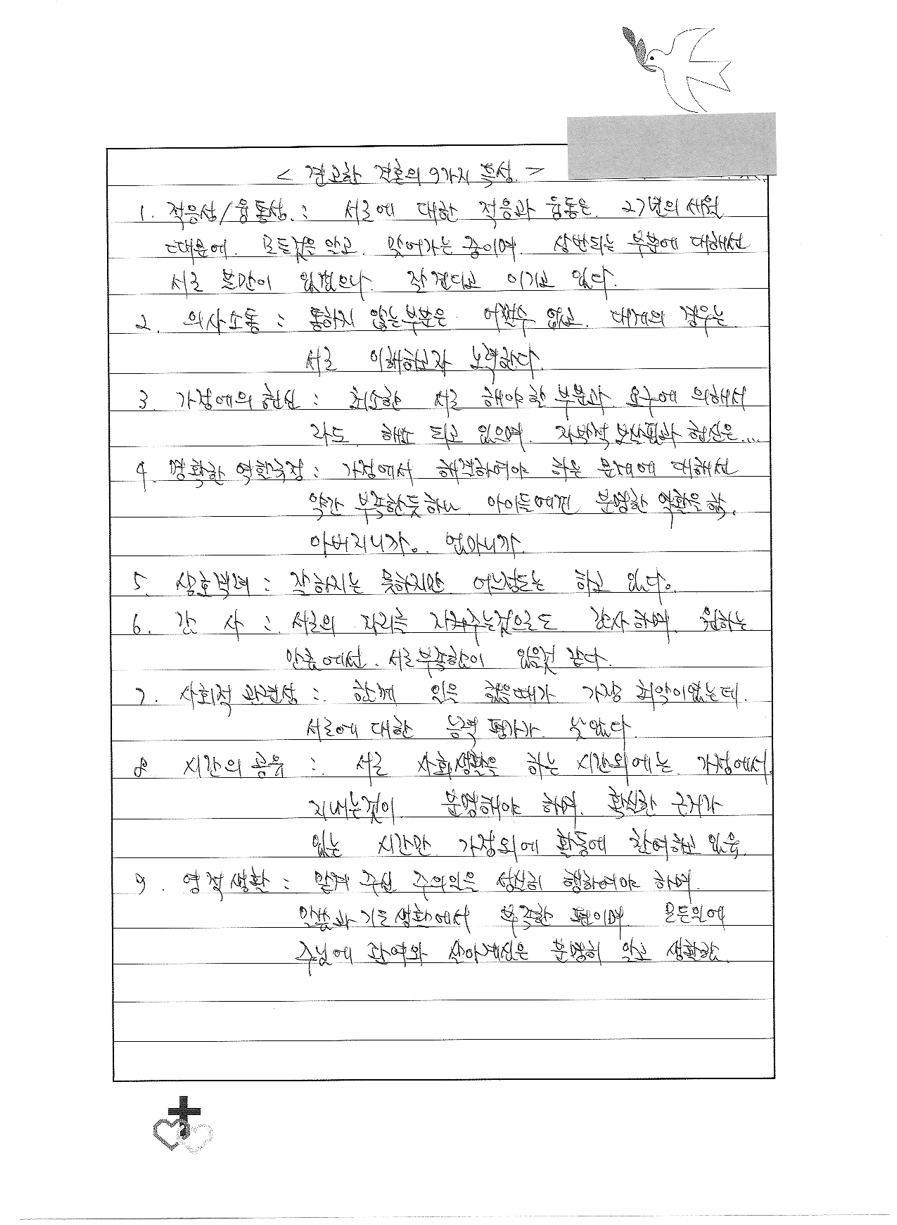 < 견고한 결혼의 9가지 특성 >
1. 적응성/융통성 : 서로에 대한 적응과 융통은 27년의 세월
때문에. 모든것을 알고. 맞어가는 중이며. 상반되는 부분에 대해선
서로 불만이 있겠으나. 잘 견디고 이기고 있다.
2. 의사소통 : 통하지 않는 부분은 어쩔수 없고. 대개의 경우는
서로 이해하고자 노력한다.
3. 가정에의 헌신 : 최소한 서로 해야할 부분과 요구에 의해서
라도. 해소 되고 있으며. 자발적 보살핌과 헌신은....
4. 명확한 역할규정 : 가정에서 해결하여야 하는 문제에 대해선
약간 부족한듯하나 아이들에겐 분명한 역할을 함.
아버지니까. 엄마니까.
5. 상호격려 : 잘하지는 못하지만 어느정도는 하고 있다.
6. 감 사 : 서로의 자리를 지켜주는것으로도 감사하며. 원하는
만큼에선. 서로 부족함이 있을것 같다.
7. 사회적 관련성 : 함께 있을 때가 가장 취약이었는데.
서로에 대한 능력 평가가. 낮았다.
8 시간의 공유 : 서로 사회생활을 하는 시간외에는. 가정에서
지내는것이 분명해야 하며. 확실한 근거가
있는 시간만. 가정외에 활동에 참여하고 있음.
9. 영적생활 : 맡겨 주신 주의일은 성실히 행하여야 하며.
말씀과 기도생활에서 부족한 편이며 모든일에
주님에 관여와 살아계심은 분명히 알고 생활함.